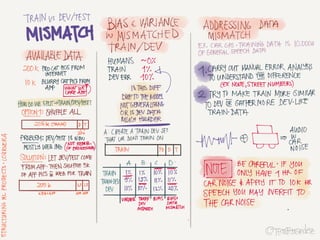 TRAIN vs DEV/TEST
MISMATCH
AVAILABLE DATA
200k PRO CAT PICS FROM
INTERNET
10k BLURRY CAT PICS FROM
APP
WHAT WE
CARE ABT
HOW DO WE SPLIT → TRAIN/DEV/TEST
OPTION 1: SHUFFLE ALL
D T
PROBLEM: DEV/TEST IS NOW
MOSTLY WEB IMG
SOLUTION: LET DEV/TEST COME
FROM APP. THEN SHUFFLE
OF APP PICS IN WEB FOR TRAIN
D T
STRUCTURING ML PROJECTS · COURSERA
BIAS & VARIANCE
W MISMATCHED
TRAIN/DEV
HUMANS ~0%
TRAIN 1%
DEV ERR 10%
IS THIS DIFF
DUE TO THE MODEL
NOT GENERALIZING
OR IS DEV DATA
MUCH HARDER
A: CREATE A TRAIN-DEV SET
THAT WE DON'T TRAIN ON
TRAIN
D T
A B C D
TRAIN 1% 1% 10% 10%
TRAIN-DEV
DEV
VARIANCE
BIAS
DATA
MISMATCH
ADDRESSING DATA
MISMATCH
EX. CAR GPS · TRAINING DATA IS 10.000H
OF GENERAL SPEECH DATA
1 CARRY OUT MANUAL ERROR ANALYSIS
TO UNDERSTAND THE DIFFERENCE
(EX NOISE, STREET NUMBERS)
2 TRY TO MAKE TRAIN MORE SIMILAR
TO DEV OR GATHER MORE DEV-LIKE
TRAIN-DATA
AUDIO
W
CAR
NOISE
NOTE: BE CAREFUL · IF YOU
ONLY HAVE 1 HR OF
CAR NOISE & APPLY IT TO 10K HR
SPEECH YOU MAY OVERFIT TO
THE CAR NOISE